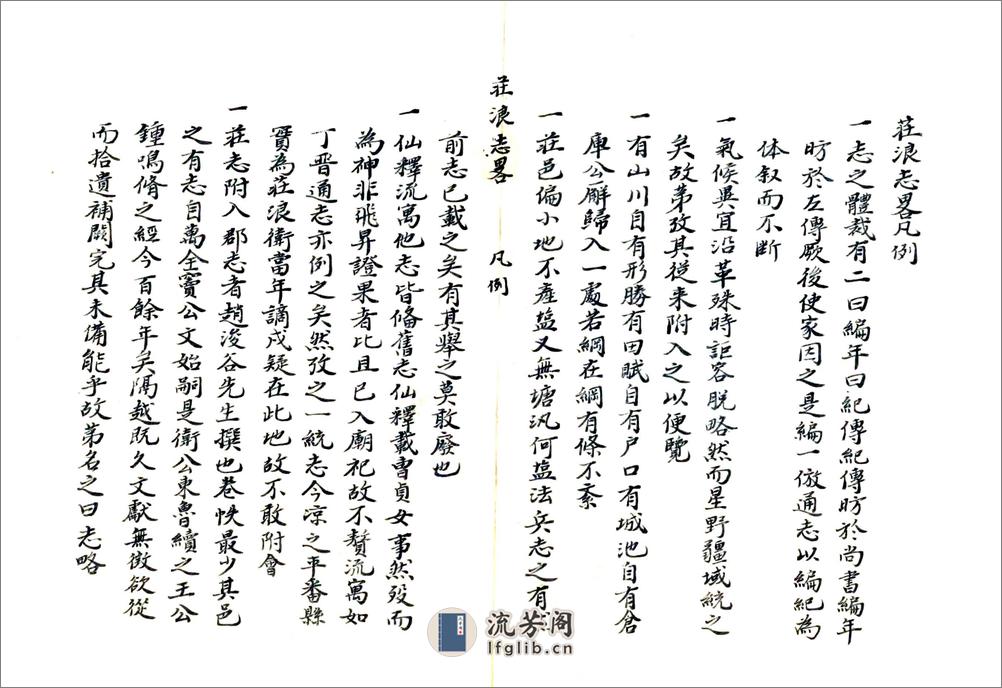 莊浪志畧凡例
一志之體裁有二曰編年曰紀傳紀傳昉於尚書編年
昉於左傳厥後使家因之是編一倣通志以編紀為
体叙而不断
一氣候異宜沿革殊時詎容脱略然而星野疆域統之
矣故苐攷其從来附入之以便覽
一有山川自有形勝有田賦自有户口有城池自有倉
庫公廨歸入一處若綱在綱有條不紊
一莊邑偏小地不產塩又無塘汛何塩法兵志之有
莊浪志畧
凡例
前志已載之矣有其舉之莫敢廢也
一仙釋流寓他志皆脩舊志仙釋載曹貞女事然殁而
為神非飛昇證果者比且已入廟祀故不贅流寓如
丁晋通志亦例之矣然攷之一統志今凉之平番縣
實為莊浪衛當年謫戍疑在此地故不敢附會
一莊志附入郡志者趙浚谷先生撰也巷帙最少其邑
之有志自萬全竇公文始嗣是衛公東魯續之王公
鍾鳴脩之經今百餘年矣隔越既久文獻無徵欲從
而拾遺補闕完其未備能乎故苐名之曰志略
流芳阁
lfglib.cn